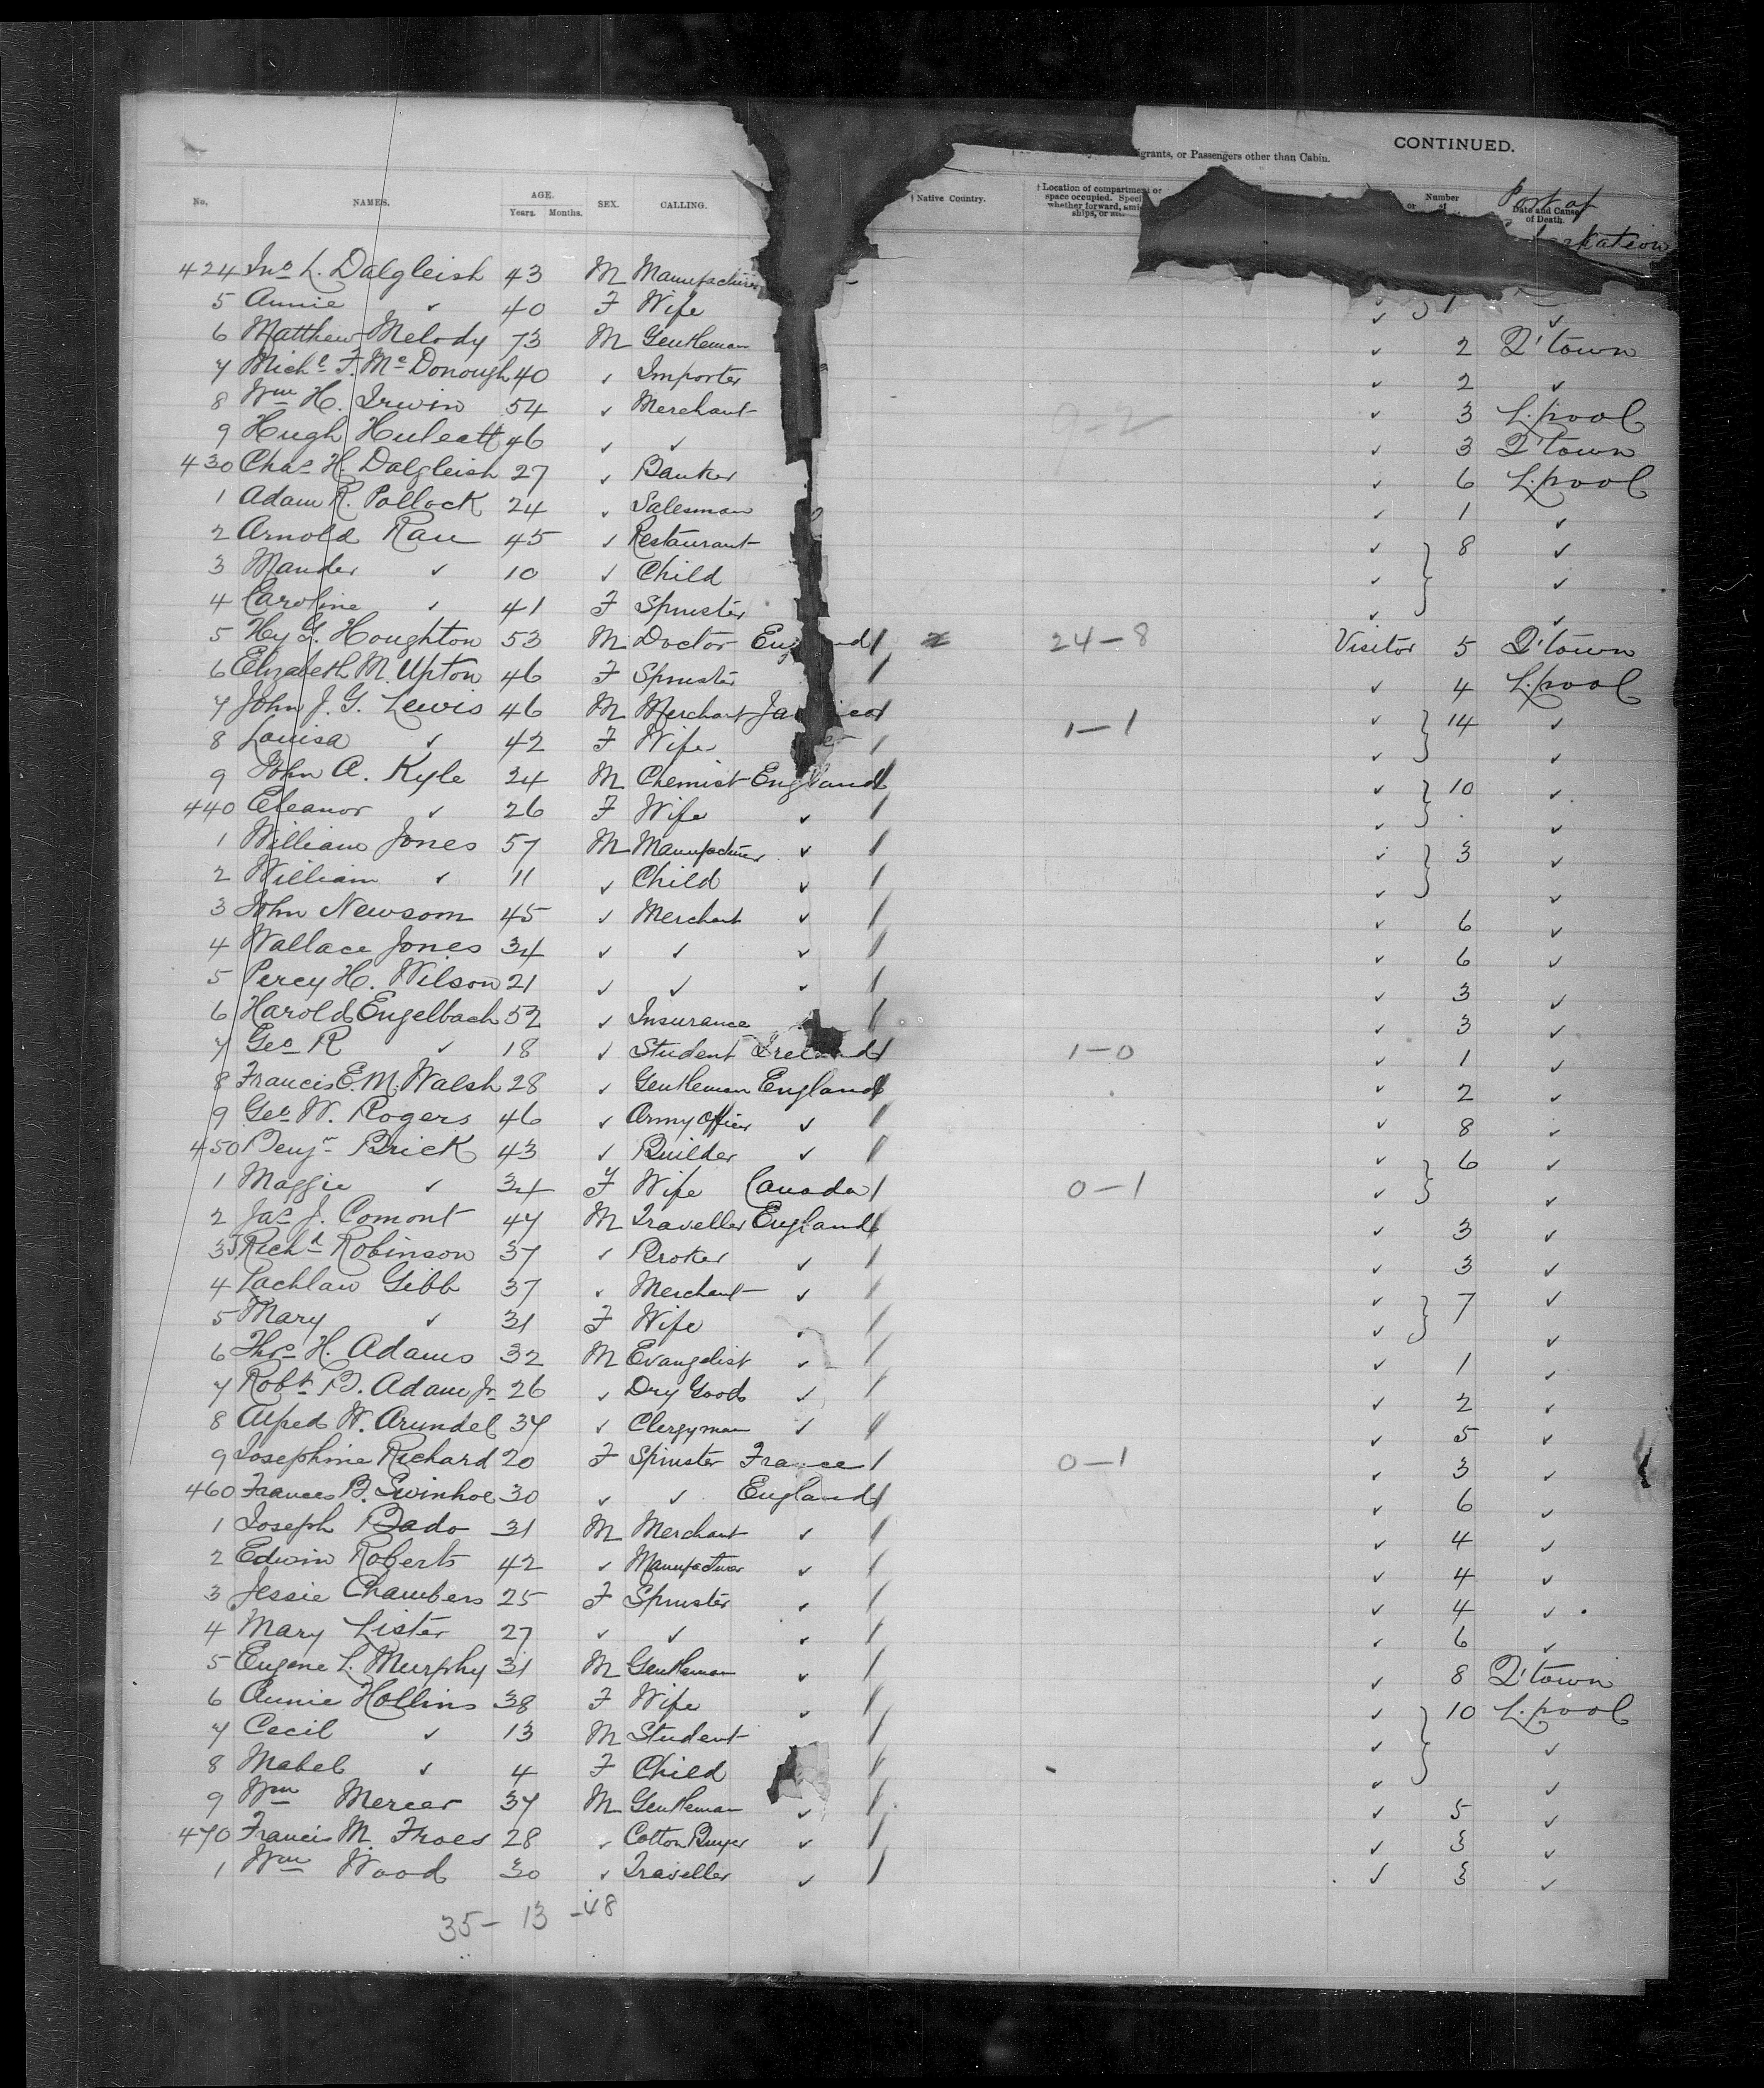 CONTINUED.
igrants, or Passengers other than Cabin.
No. NAMES. AGE. Years. Months. SEX. CALLING. † Native Country. † Location of compartment or space occupied. whether forward, ships, or Number Date and Cause of Death.
Port of
424 Jno L. Dalgleish 43 M Manufacturer
5 Annie ✓ 40 F Wife ✓ } 1 ✓
6 Matthew Melody 73 M Gentleman ✓ 2 Q'town
7 Michl F. McDonough 40 ✓ Importer ✓ 2 ✓
8 Wm H. Irwin 54 ✓ Merchant 9-2 ✓ 3 L.pool
9 Hugh Huleatt 46 ✓ ✓ ✓ 3 Q'town
430 Chas H. Dalgleish 27 ✓ Banker ✓ 6 L.pool
1 Adam R. Pollock 24 ✓ Salesman ✓ 1 ✓
2 Arnold Rau 45 ✓ Restaurant ✓ } 8 ✓
3 Mander ✓ 10 ✓ Child ✓ ✓
4 Caroline ✓ 41 F Spinster ✓ ✓
5 Hy G. Houghton 53 M Doctor England / 24-8 Visitor 5 Q'town
6 Elizabeth M. Upton 46 F Spinster / ✓ 4 L.pool
7 John J. G. Lewis 46 M Merchant Jamaica / 1-1 ✓ } 14 ✓
8 Louisa ✓ 42 F Wife / ✓ ✓
9 John A. Kyle 24 M Chemist England / ✓ } 10 ✓
440 Eleanor ✓ 26 F Wife ✓ / ✓ ✓
1 William Jones 57 M Manufacturer ✓ / ✓ } 3 ✓
2 William ✓ 11 ✓ Child ✓ / ✓ ✓
3 John Newsom 45 ✓ Merchant ✓ / ✓ 6 ✓
4 Wallace Jones 34 ✓ ✓ ✓ / ✓ 6 ✓
5 Percy H. Wilson 21 ✓ ✓ ✓ / ✓ 3 ✓
6 Harold Engelbach 52 ✓ Insurance / ✓ 3 ✓
7 Geo R ✓ 18 ✓ Student Ireland / 1-0 ✓ 1 ✓
8 Francis E. M. Walsh 28 ✓ Gentleman England / ✓ 2 ✓
9 Geo W. Rogers 46 ✓ Army Officer ✓ / ✓ 8 ✓
450 Benjn Brick 43 ✓ Builder ✓ / ✓ } 6 ✓
1 Maggie ✓ 34 F Wife Canada / 0-1 ✓ ✓
2 Jas J. Comont 47 M Traveller England / ✓ 3 ✓
3 J. Richd Robinson 37 ✓ Broker ✓ / ✓ 3 ✓
4 Lachlan Gibb 37 ✓ Merchant ✓ / ✓ } 7 ✓
5 Mary ✓ 31 F Wife ✓ / ✓ ✓
6 Thos H. Adams 32 M Evangelist ✓ / ✓ 1 ✓
7 Robt B. Adam Jr 26 ✓ Dry Goods ✓ / ✓ 2 ✓
8 Alfred W. Arundel 37 ✓ Clergyman ✓ / ✓ 5 ✓
9 Josephine Richard 20 F Spinster France / 0-1 ✓ 3 ✓
460 Frances B. Swinhoe 30 ✓ ✓ England / ✓ 6 ✓
1 Joseph Bado 31 M Merchant ✓ / ✓ 4 ✓
2 Edwin Roberts 42 ✓ Manufacturer ✓ / ✓ 4 ✓
3 Jessie Chambers 25 F Spinster ✓ / ✓ 4 ✓
4 Mary Lister 27 ✓ ✓ ✓ / ✓ 6 ✓
5 Eugene L. Murphy 31 M Gentleman ✓ / ✓ 8 Q'town
6 Annie Hollins 38 F Wife ✓ / ✓ } 10 L.pool
7 Cecil ✓ 13 M Student / ✓ ✓
8 Mabel ✓ 4 F Child / ✓ ✓
9 Wm Mercer 37 M Gentleman ✓ / ✓ 5 ✓
470 Francis M. Froes 28 ✓ Cotton Buyer ✓ / ✓ 3 ✓
1 Wm Wood 30 ✓ Traveller ✓ / ✓ 3 ✓
35- 13 -48